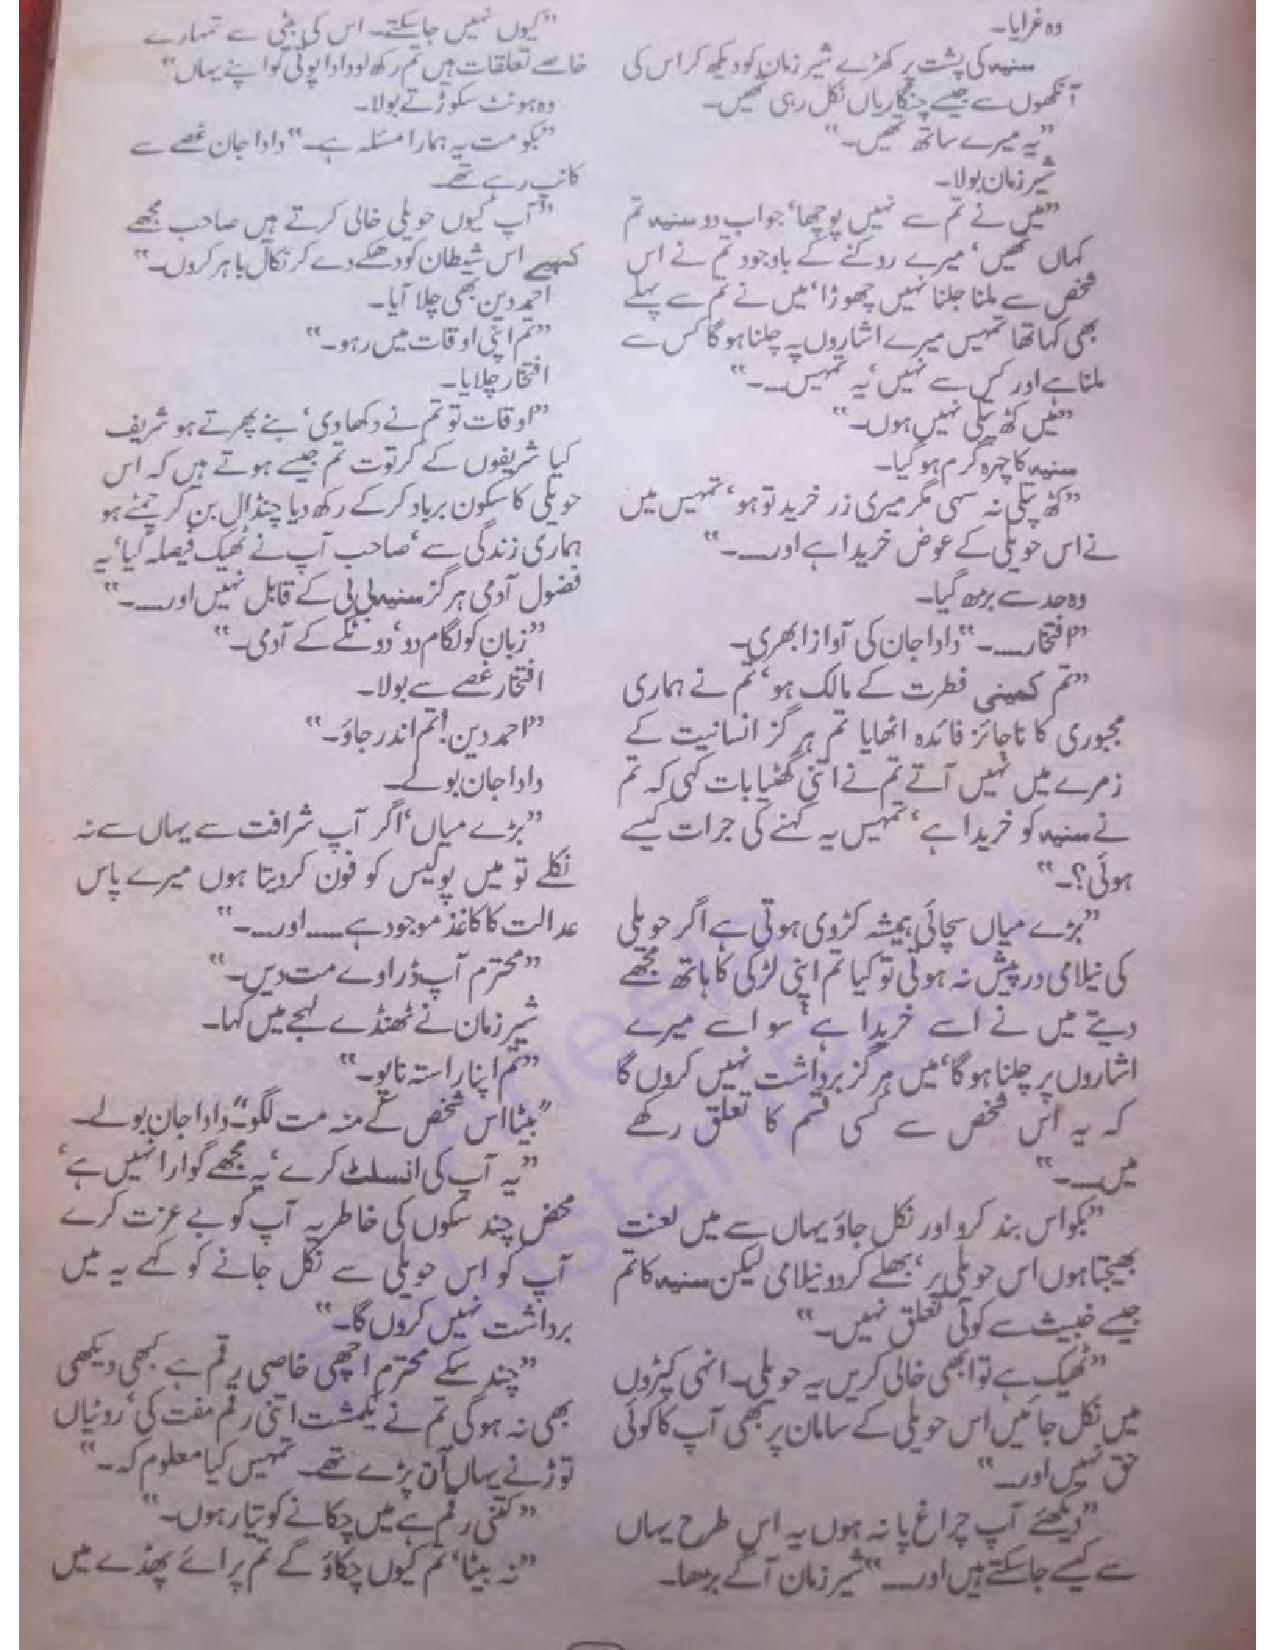 وہ غرایا۔
سنیہ کی پشت پر کھڑے شیر زمان کو دیکھ کر اس کی
آنکھوں سے جیسے چنگاریاں نکل رہی تھیں۔
”یہ میرے ساتھ تھیں۔“
شیر زمان بولا۔
”میں نے تم سے نہیں پوچھا‘ جواب دو سنیہ تم
کہاں تھیں‘ میرے روکنے کے باوجود تم نے اس
شخص سے ملنا جلنا نہیں چھوڑا‘ میں نے تم سے پہلے
بھی کہا تھا تمہیں میرے اشاروں پہ چلنا ہو گا کس سے
ملنا ہے اور کس سے نہیں‘ یہ تمہیں۔۔۔“
”میں کٹھ پتلی نہیں ہوں۔“
سنیہ کا چہرہ گرم ہو گیا۔
”کٹھ پتلی نہ سہی مگر میری زر خرید تو ہو‘ تمہیں میں
نے اس حویلی کے عوض خریدا ہے اور۔۔۔۔“
وہ حد سے بڑھ گیا۔
”افتخار۔۔۔۔“ دادا جان کی آواز ابھری۔
”تم کمینی فطرت کے مالک ہو‘ تم نے ہماری
مجبوری کا ناجائز فائدہ اٹھایا تم ہر گز انسانیت کے
زمرے میں نہیں آتے تم نے اتنی گھٹیا بات کہی کہ تم
نے سنیہ کو خریدا ہے‘ تمہیں یہ کہنے کی جرات کیسے
ہوئی؟۔“
”بڑے میاں سچائی ہمیشہ کڑوی ہوتی ہے اگر حویلی
کی نیلامی در پیش نہ ہوتی تو کیا تم اپنی لڑکی کا ہاتھ مجھے
دیتے میں نے اسے خریدا ہے‘ سو اسے میرے
اشاروں پر چلنا ہو گا‘ میں ہر گز برداشت نہیں کروں گا
کہ یہ اس شخص سے کسی قسم کا تعلق رکھے
میں۔۔۔“
”بکواس بند کرو اور نکل جاؤ یہاں سے میں لعنت
بھیجتا ہوں اس حویلی پر‘ بھلے کر دو نیلامی لیکن سنیہ کا تم
جیسے خبیث سے کوئی تعلق نہیں۔“
”ٹھیک ہے تو ابھی خالی کریں یہ حویلی۔ انہی کپڑوں
میں نکل جائیں اس حویلی کے سامان پر بھی آپ کا کوئی
حق نہیں اور۔۔“
”دیکھئے آپ چراغ پا نہ ہوں یہ اس طرح یہاں
سے کیسے جا سکتے ہیں اور۔۔۔۔“ شیر زمان آگے بڑھا۔
”کیوں نہیں جا سکتے۔ اس کی بیٹی سے تمہارے
خاصے تعلقات ہیں تم رکھ لو دادا پوتی کو اپنے یہاں“
وہ ہونٹ سکوڑتے بولا۔
”بکو مت یہ ہمارا مسئلہ ہے۔“ دادا جان غصے سے
کانپ رہے تھے۔
”آپ کیوں حویلی خالی کرتے ہیں صاحب مجھے
کہیے اس شیطان کو دھکے دے کر نکال باہر کروں۔“
احمد دین بھی چلا آیا۔
”تم اپنی اوقات میں رہو۔“
افتخار چلایا۔
”اوقات تو تم نے دکھا دی‘ بنے پھرتے ہو شریف
کیا شریفوں کے کرتوت تم جیسے ہوتے ہیں کہ اس
حویلی کا سکون برباد کر کے رکھ دیا چنڈال بن کر چمٹے ہو
ہماری زندگی سے‘ صاحب آپ نے ٹھیک فیصلہ کیا‘ یہ
فضول آدمی ہر گز سنیہ بی بی کے قابل نہیں اور۔۔۔۔“
”زبان کو لگام دو‘ دو ٹکے کے آدمی۔“
افتخار غصے سے بولا۔
”احمد دین! تم اندر جاؤ۔“
دادا جان بولے۔
”بڑے میاں‘ اگر آپ شرافت سے یہاں سے نہ
نکلے تو میں پولیس کو فون کر دیتا ہوں میرے پاس
عدالت کا کاغذ موجود ہے۔۔۔۔ اور۔۔۔“
”محترم آپ ڈراوے مت دیں۔“
شیر زمان نے ٹھنڈے لہجے میں کہا۔
”تم اپنا راستہ ناپو۔“
”بیٹا اس شخص کے منہ مت لگو“۔ دادا جان بولے۔
”یہ آپ کی انسلٹ کرے‘ یہ مجھے گوارا نہیں ہے‘
محض چند سکوں کی خاطر یہ آپ کو بے عزت کرے
آپ کو اس حویلی سے نکل جانے کو کہے یہ میں
برداشت نہیں کروں گا۔“
”چند سکے محترم اچھی خاصی رقم ہے کبھی دیکھی
بھی نہ ہو گی تم نے یکمشت اتنی رقم مفت کی‘ روٹیاں
توڑنے یہاں آن پڑے تھے۔ تمہیں کیا معلوم کہ۔“
”کتنی رقم ہے میں چکانے کو تیار ہوں۔“
”نہ بیٹا‘ تم کیوں چکاؤ گے تم پرائے پھڈے میں